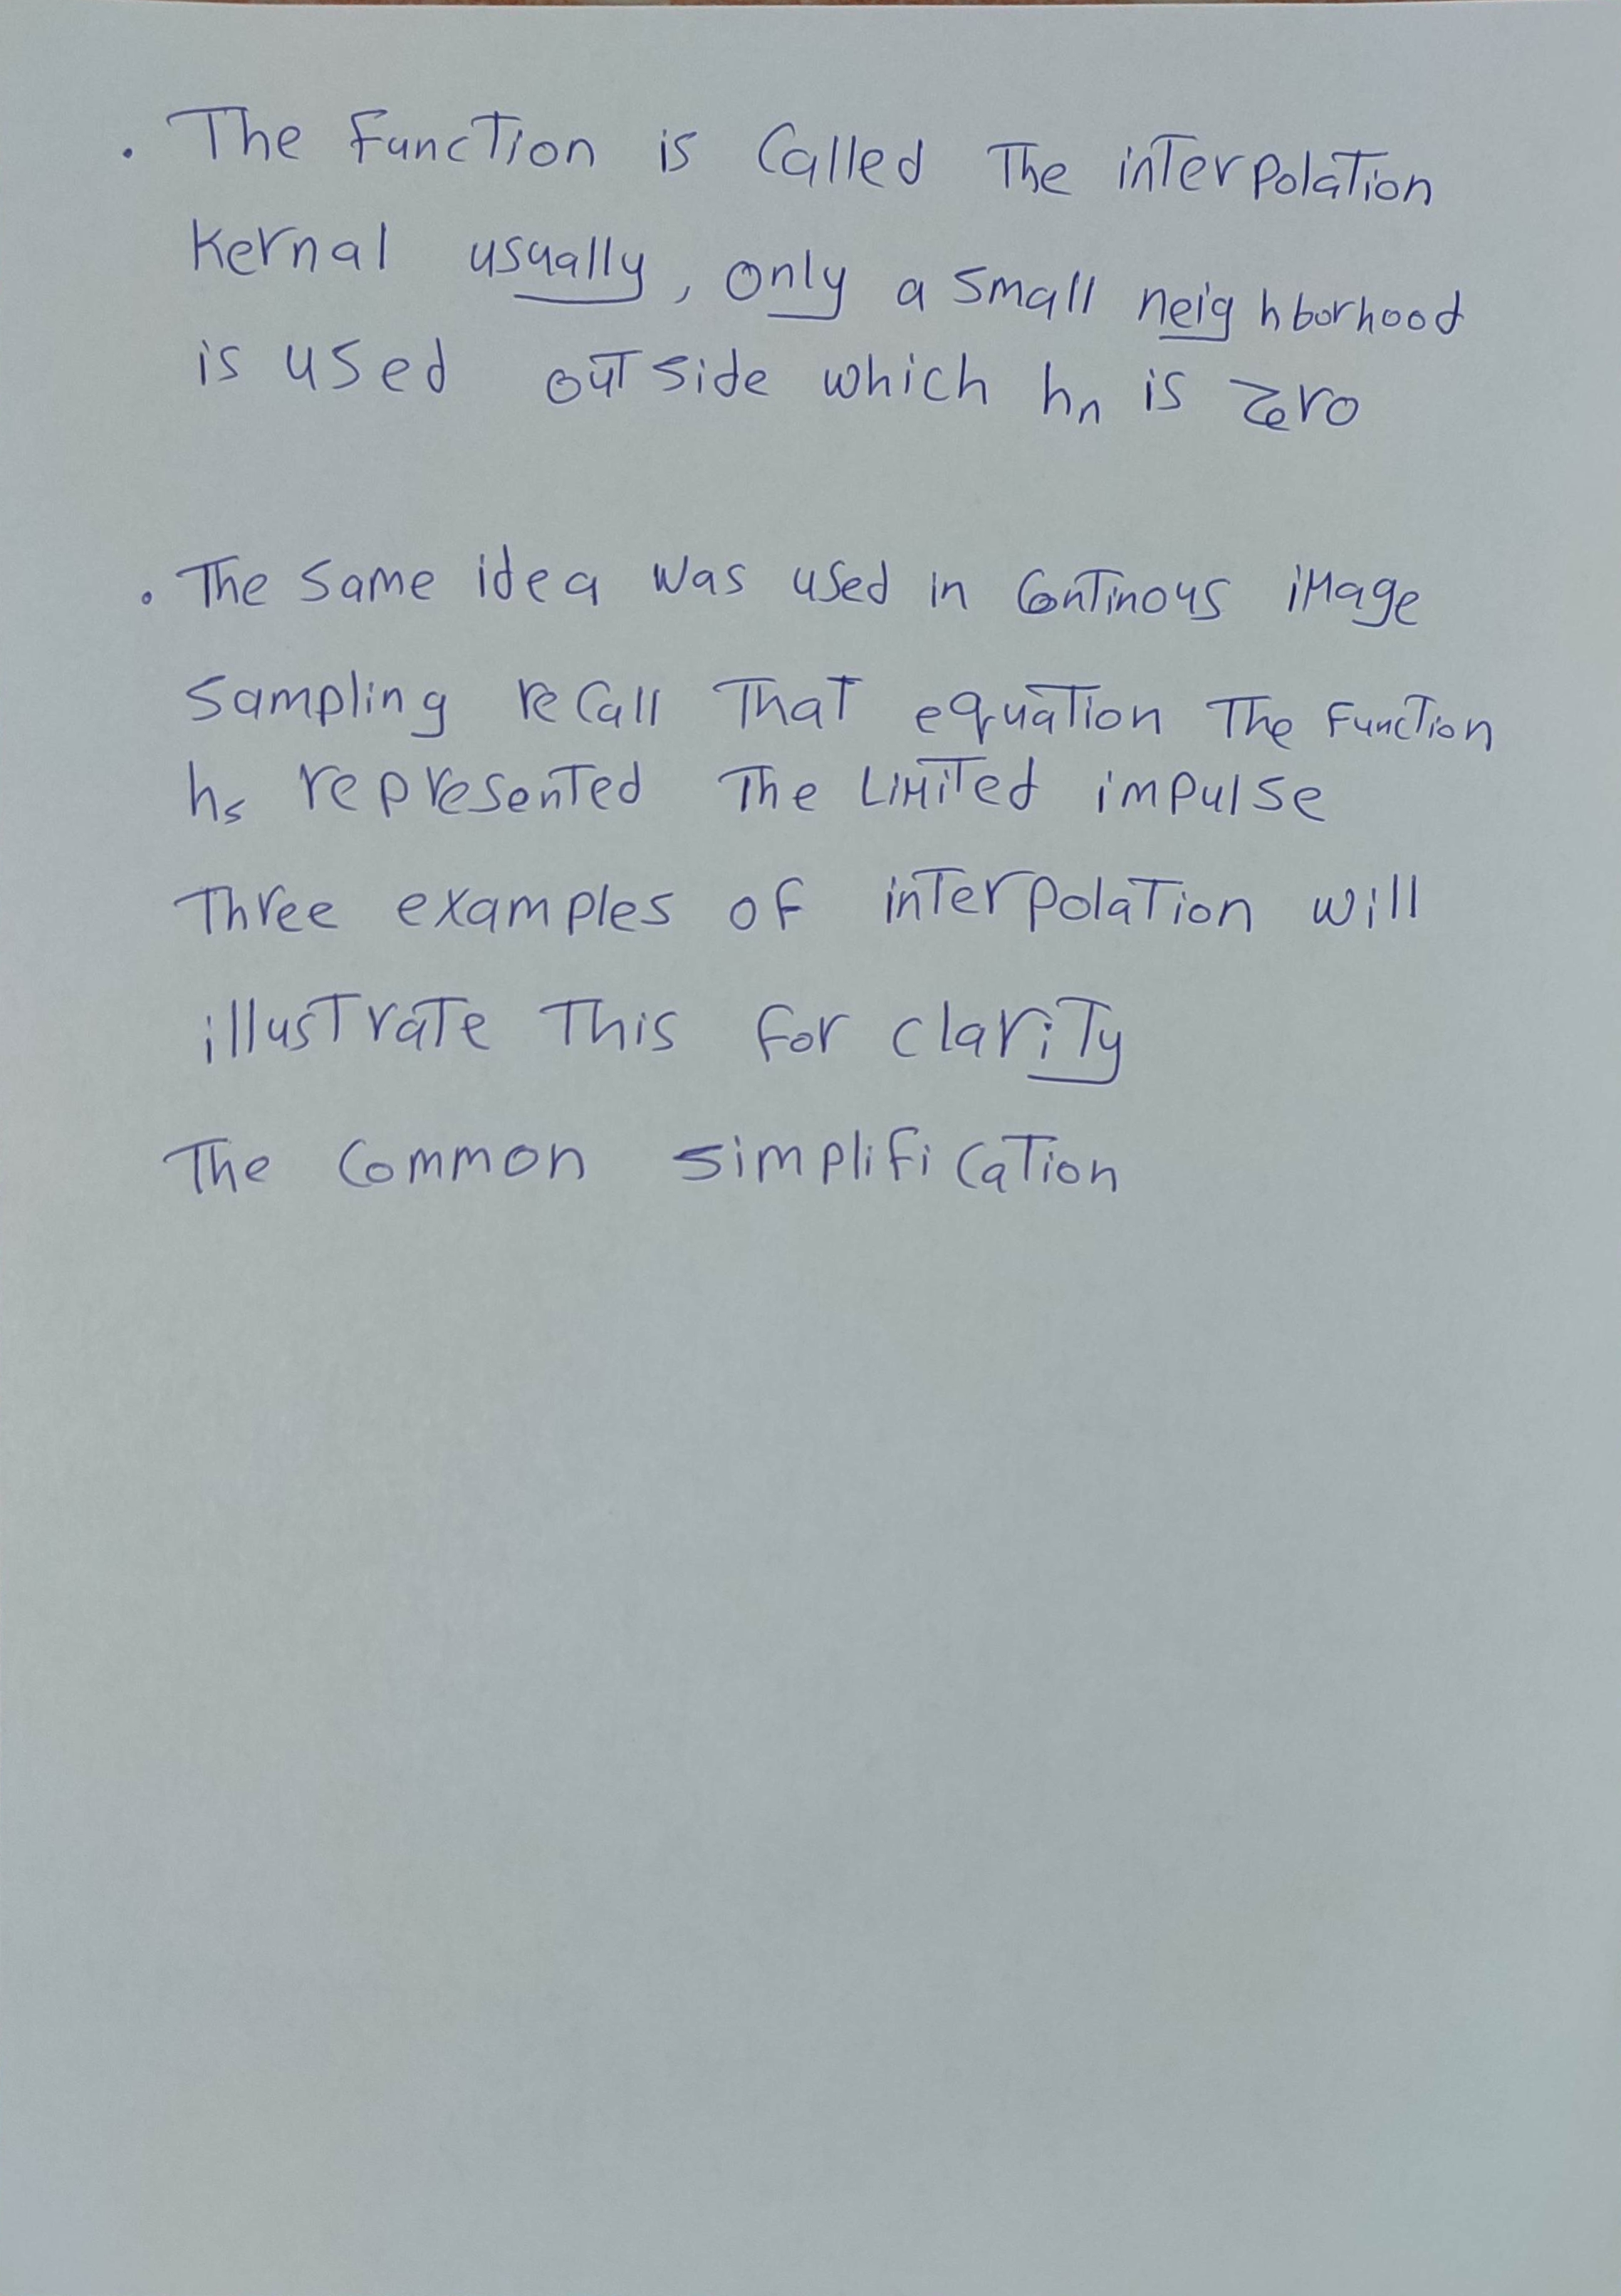 . The Function is Called The interpolation
Kernal usually, only a small neighborhood
is used outside which hn is zero
. The Same idea was used in Continous image
Sampling reCall That equation The Function
hs represented The Limited impulse
Three examples of interpolation will
illustrate This for clarity
The Common simplification